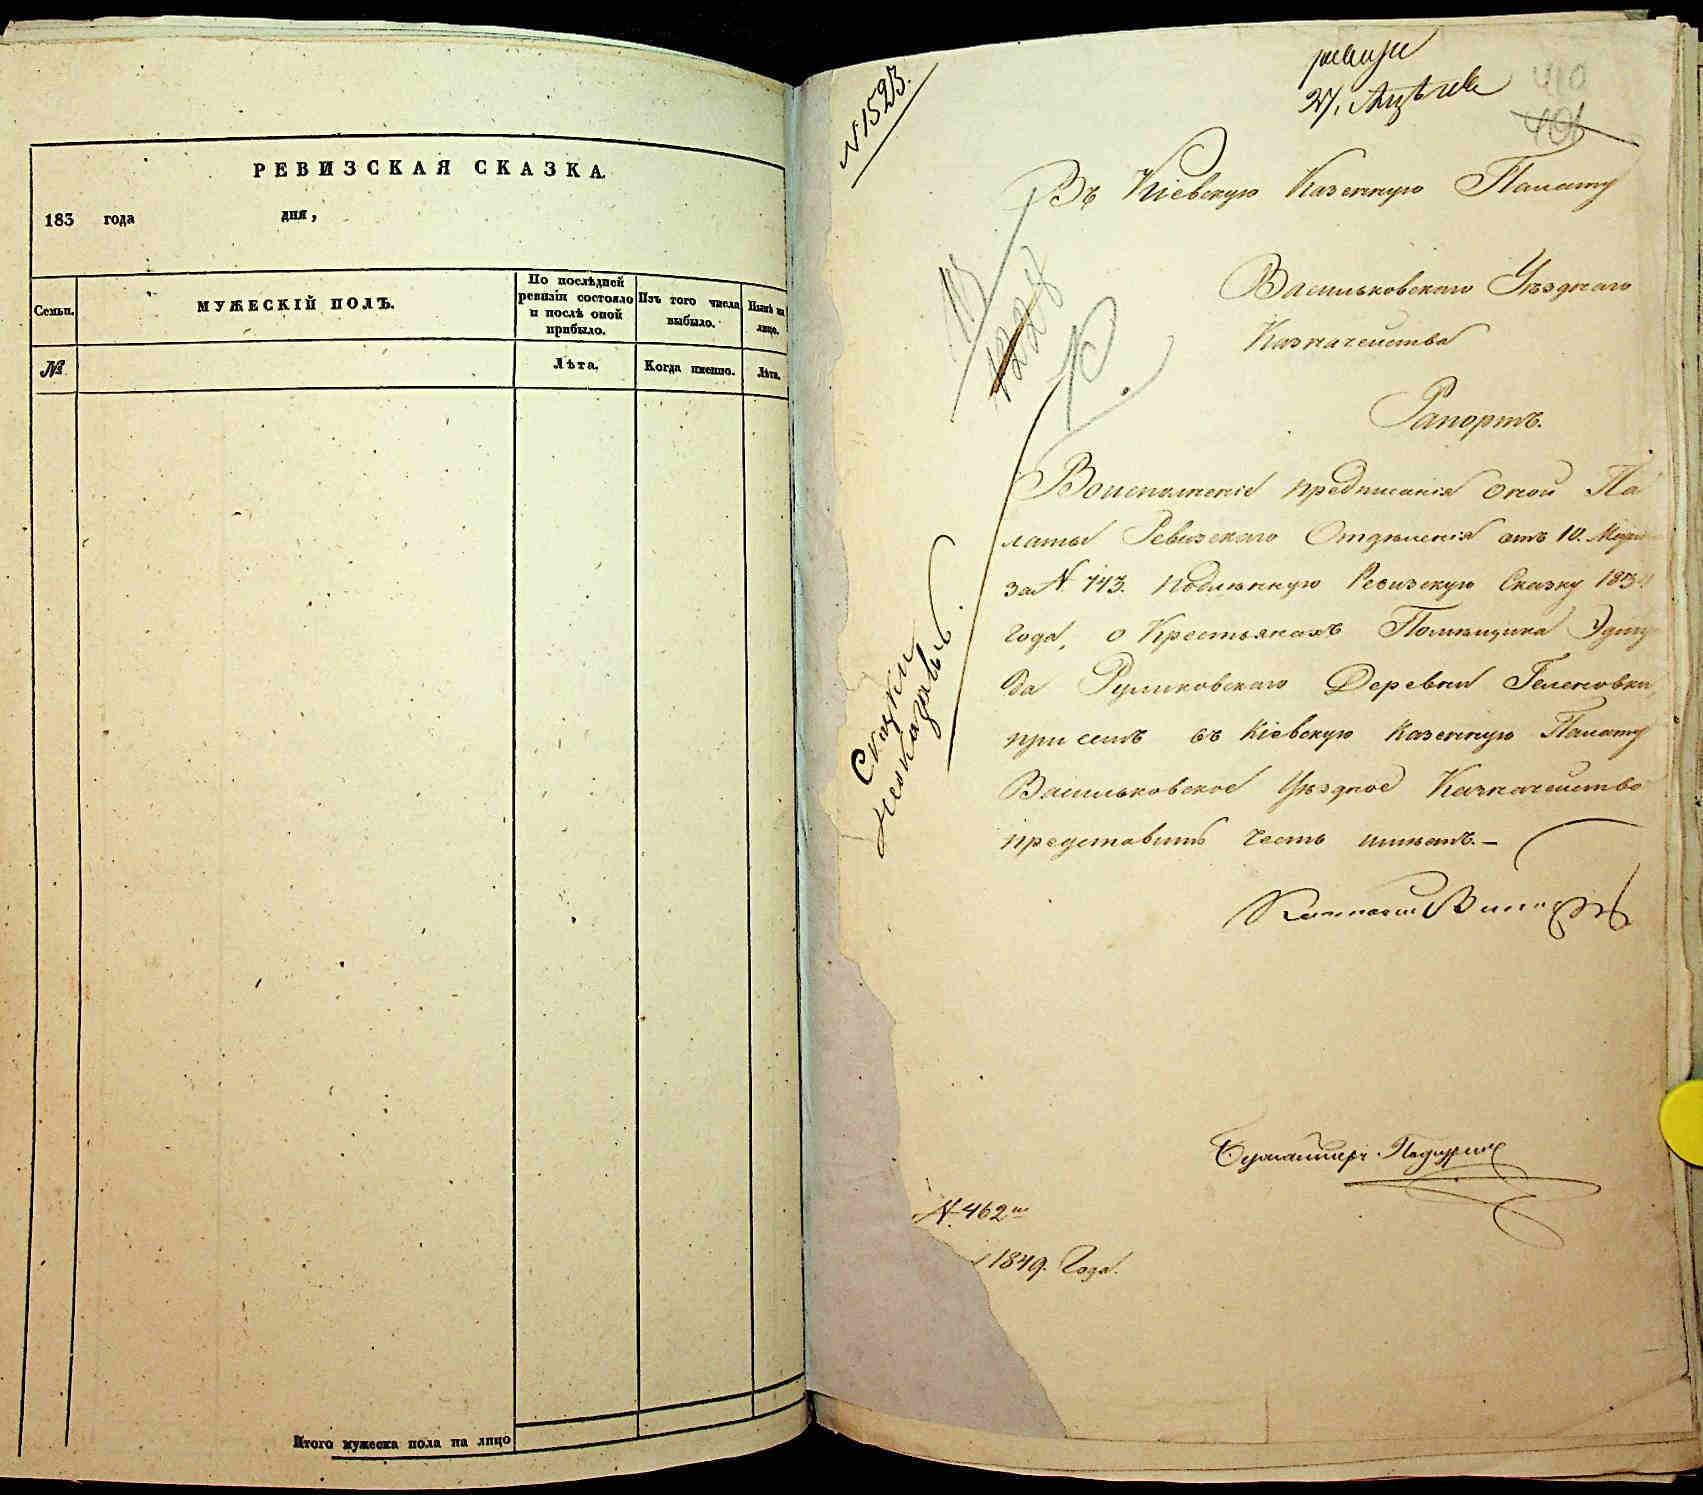 РЕВИЗСКАЯ СКАЗКА.
183 года дня,
Семьи. МУЖЕСКІЙ ПОЛЪ. По послѣдней ревизіи состояло и послѣ оной прибыло. Изъ того числа выбыло. Нынѣ на лицо.
№ Лѣта. Когда именно. Лѣта.
Итого мужеска пола на лицо
N 1523.
27.
410
Въ Кіевскую Казенную Палату
Васильковскаго Уѣзднаго
Казначейства
Рапортъ.
Воисполненіе предписанія оной Па
латы Ревизскаго Отдѣленія отъ 10. Марта
за N 743. Подлинную Ревизскую Сказку 1834
года, о Крестьянахъ Помѣщика Эдму
да Руликовскаго Деревни Геленовки,
при семъ въ Кіевскую Казенную Палату
Васильковское Уѣздное Казначейство
представить честь имѣетъ.—
Казначей
Бухгалтеръ
Сказки
N. 462
1849. Года.